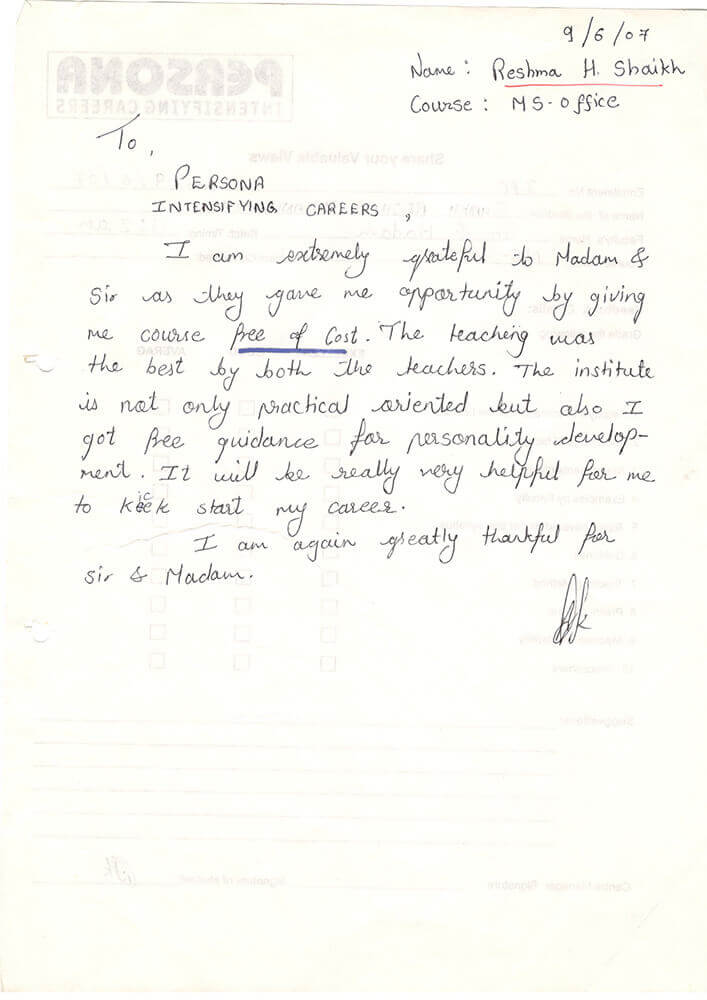 9/6/07
Name: Reshma H. Shaikh
Course: MS-Office
To,
PERSONA
INTENSIFYING CAREERS,
I am extremely grateful to Madam &
Sir as they gave me opportunity by giving
me course free of Cost. The teaching was
the best by both the teachers. The institute
is not only practical oriented but also I
got free guidance for personality develop-
ment. It will be really very helpful for me
to kick start my career.
I am again greatly thankful for
sir & Madam.
PERSONA
INTENSIFYING CAREERS
Share your Valuable Views
Suggestions:
Centre Manager Signature
Signature of student